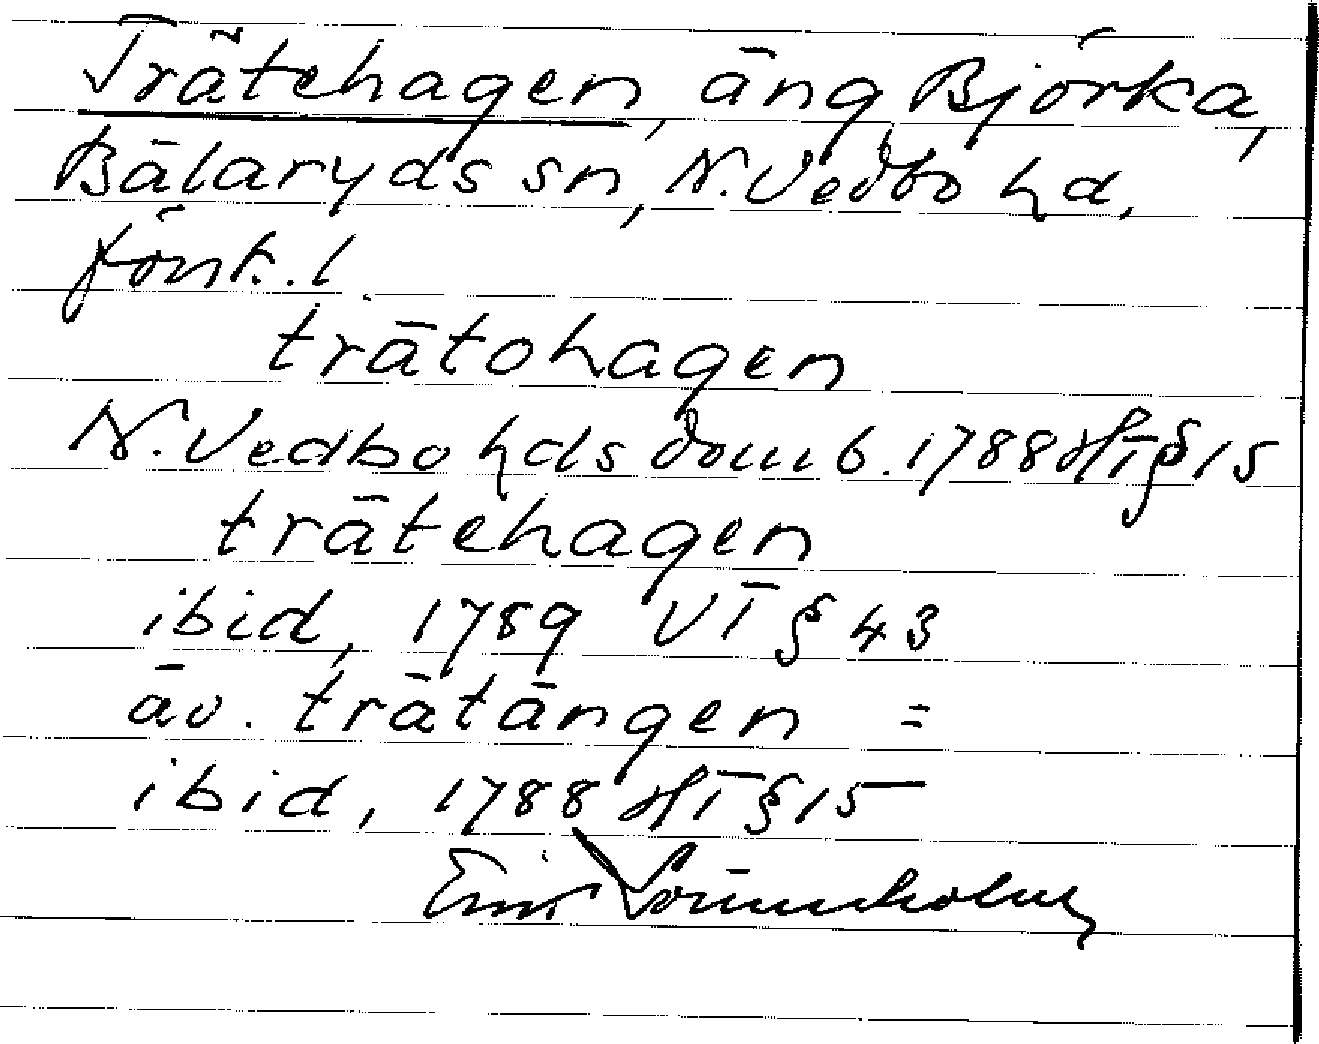 Trätehagen, äng, Björka,
Bälaryds sn, N. Vedbo hd,
Jönk. l.
trätohagen
N. Vedbo hds domb. 1788 HT § 15
trätehagen
ibid, 1789 VT § 43
äv. trätängen =
ibid, 1788 HT § 15